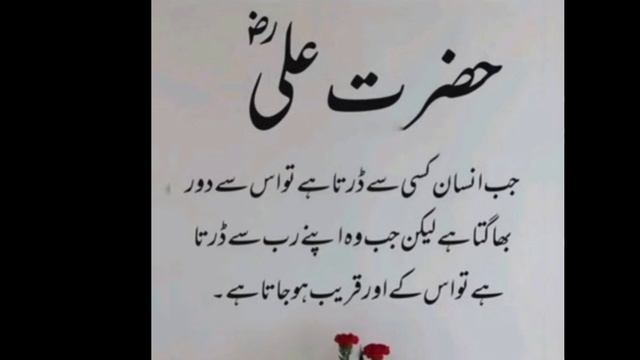 حضرت علیؓ
جب انسان کسی سے ڈرتا ہے تو اس سے دور
بھاگتا ہے لیکن جب وہ اپنے رب سے ڈرتا
ہے تو اس کے اور قریب ہو جاتا ہے۔